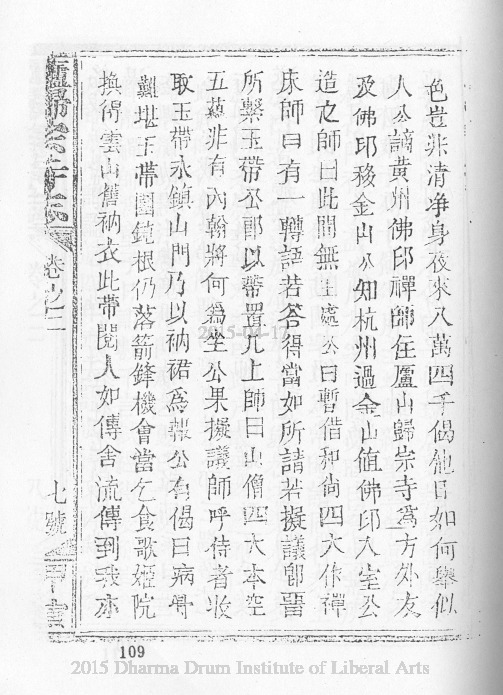 色豈非清净身夜來八萬四千偈他日如何舉似
人公謫黃州佛印禪師住廬山歸宗寺為方外友
及佛印移金山公知杭州過金山值佛印入室公
造之師曰此間無坐處公曰暫借和尚四大作禪
床師曰有一轉語若答得當如所請若擬議即留
所繫玉帶公即以帶置几上師曰山僧四大本空
五蘊非有內翰將何為坐公果擬議師呼侍者收
取玉帶永鎮山門乃以衲裙為報公有偈曰病骨
難堪玉帶圍鈍根仍落箭鋒機會當乞食歌姬院
換得雲山舊衲衣此帶閱人如傳舍流傳到我亦
卷之二
七號
109
2015-04-17
2015 Dharma Drum Institute of Liberal Arts